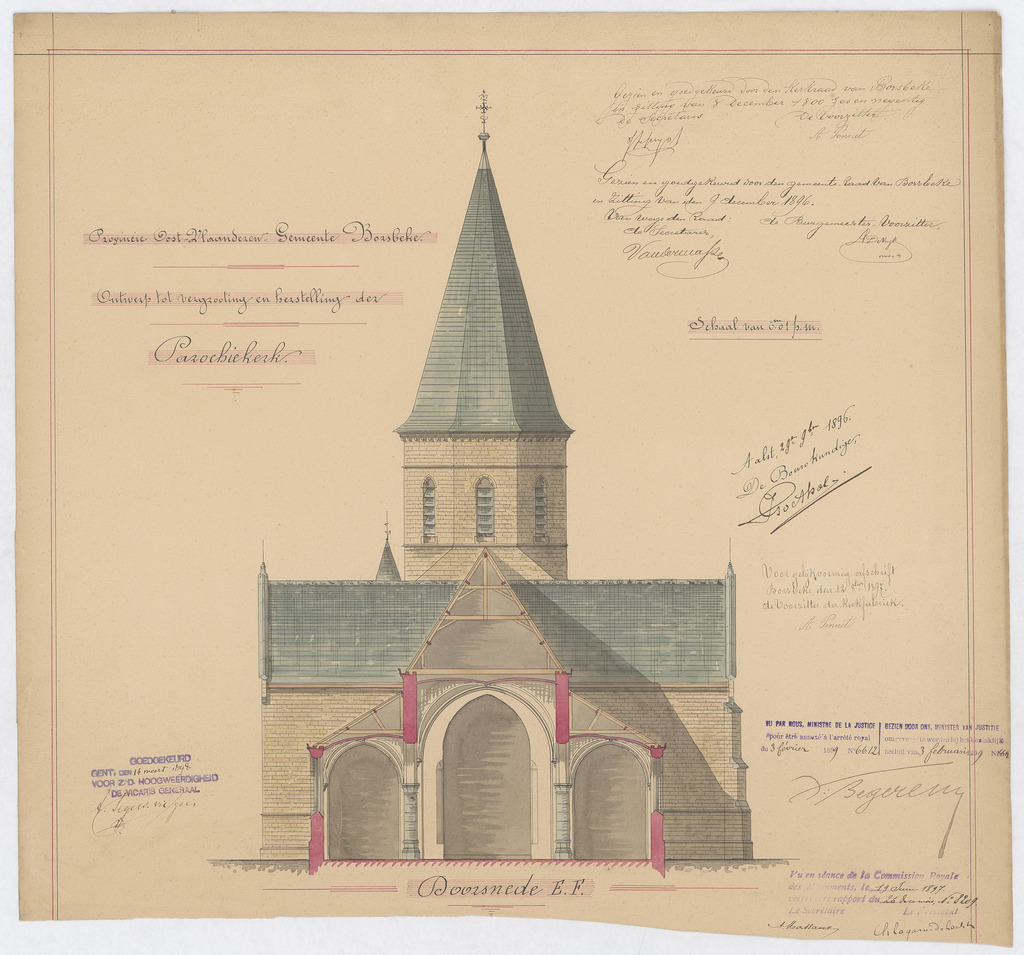 Provincie Oost-Vlaanderen - Gemeente Borsbeke.
Ontwerp tot vergrooting en herstelling der
Parochiekerk.
Gezien en goedgekeurd door den Kerkraad van Borsbeke
in zitting van 8 December 1800 zes en negentig
De Secretaris
De Voorzitter
A. Pennet
Gezien en goedgekeurd door den gemeente-Raad van Borsbeke
in Zitting van den 9 december 1896.
Van wege den Raad:
de Burgemeester-Voorzitter,
de Secretaris,
Schaal van 0m01 p.m.
Aalst, 29n 9ber 1896.
De Bouwkundige,
Voor gelijkvormig afschrift
Borsbeke, den 12 1897.
de Voorzitter der Kerkfabriek.
A Pennet
VU PAR NOUS, MINISTRE DE LA JUSTICE
pour être annexé à l'arrêté royal
du 3 février 1899 Nº 6612
GEZIEN DOOR ONS, MINISTER VAN JUSTITIE
om te worden bij het koninklijk
besluit van 3 februari
GOEDGEKEURD
GENT, DEN 16 meert 1898
VOOR Z. D. HOOGWEERDIGHEID
DE VICARIS GENERAAL
Doorsnede E.F.
Vu en séance de la Commission Royale
des Monuments, le 19 Juin 1897
rapport du 26 Nº 3209.
Le Secrétaire
Le Président